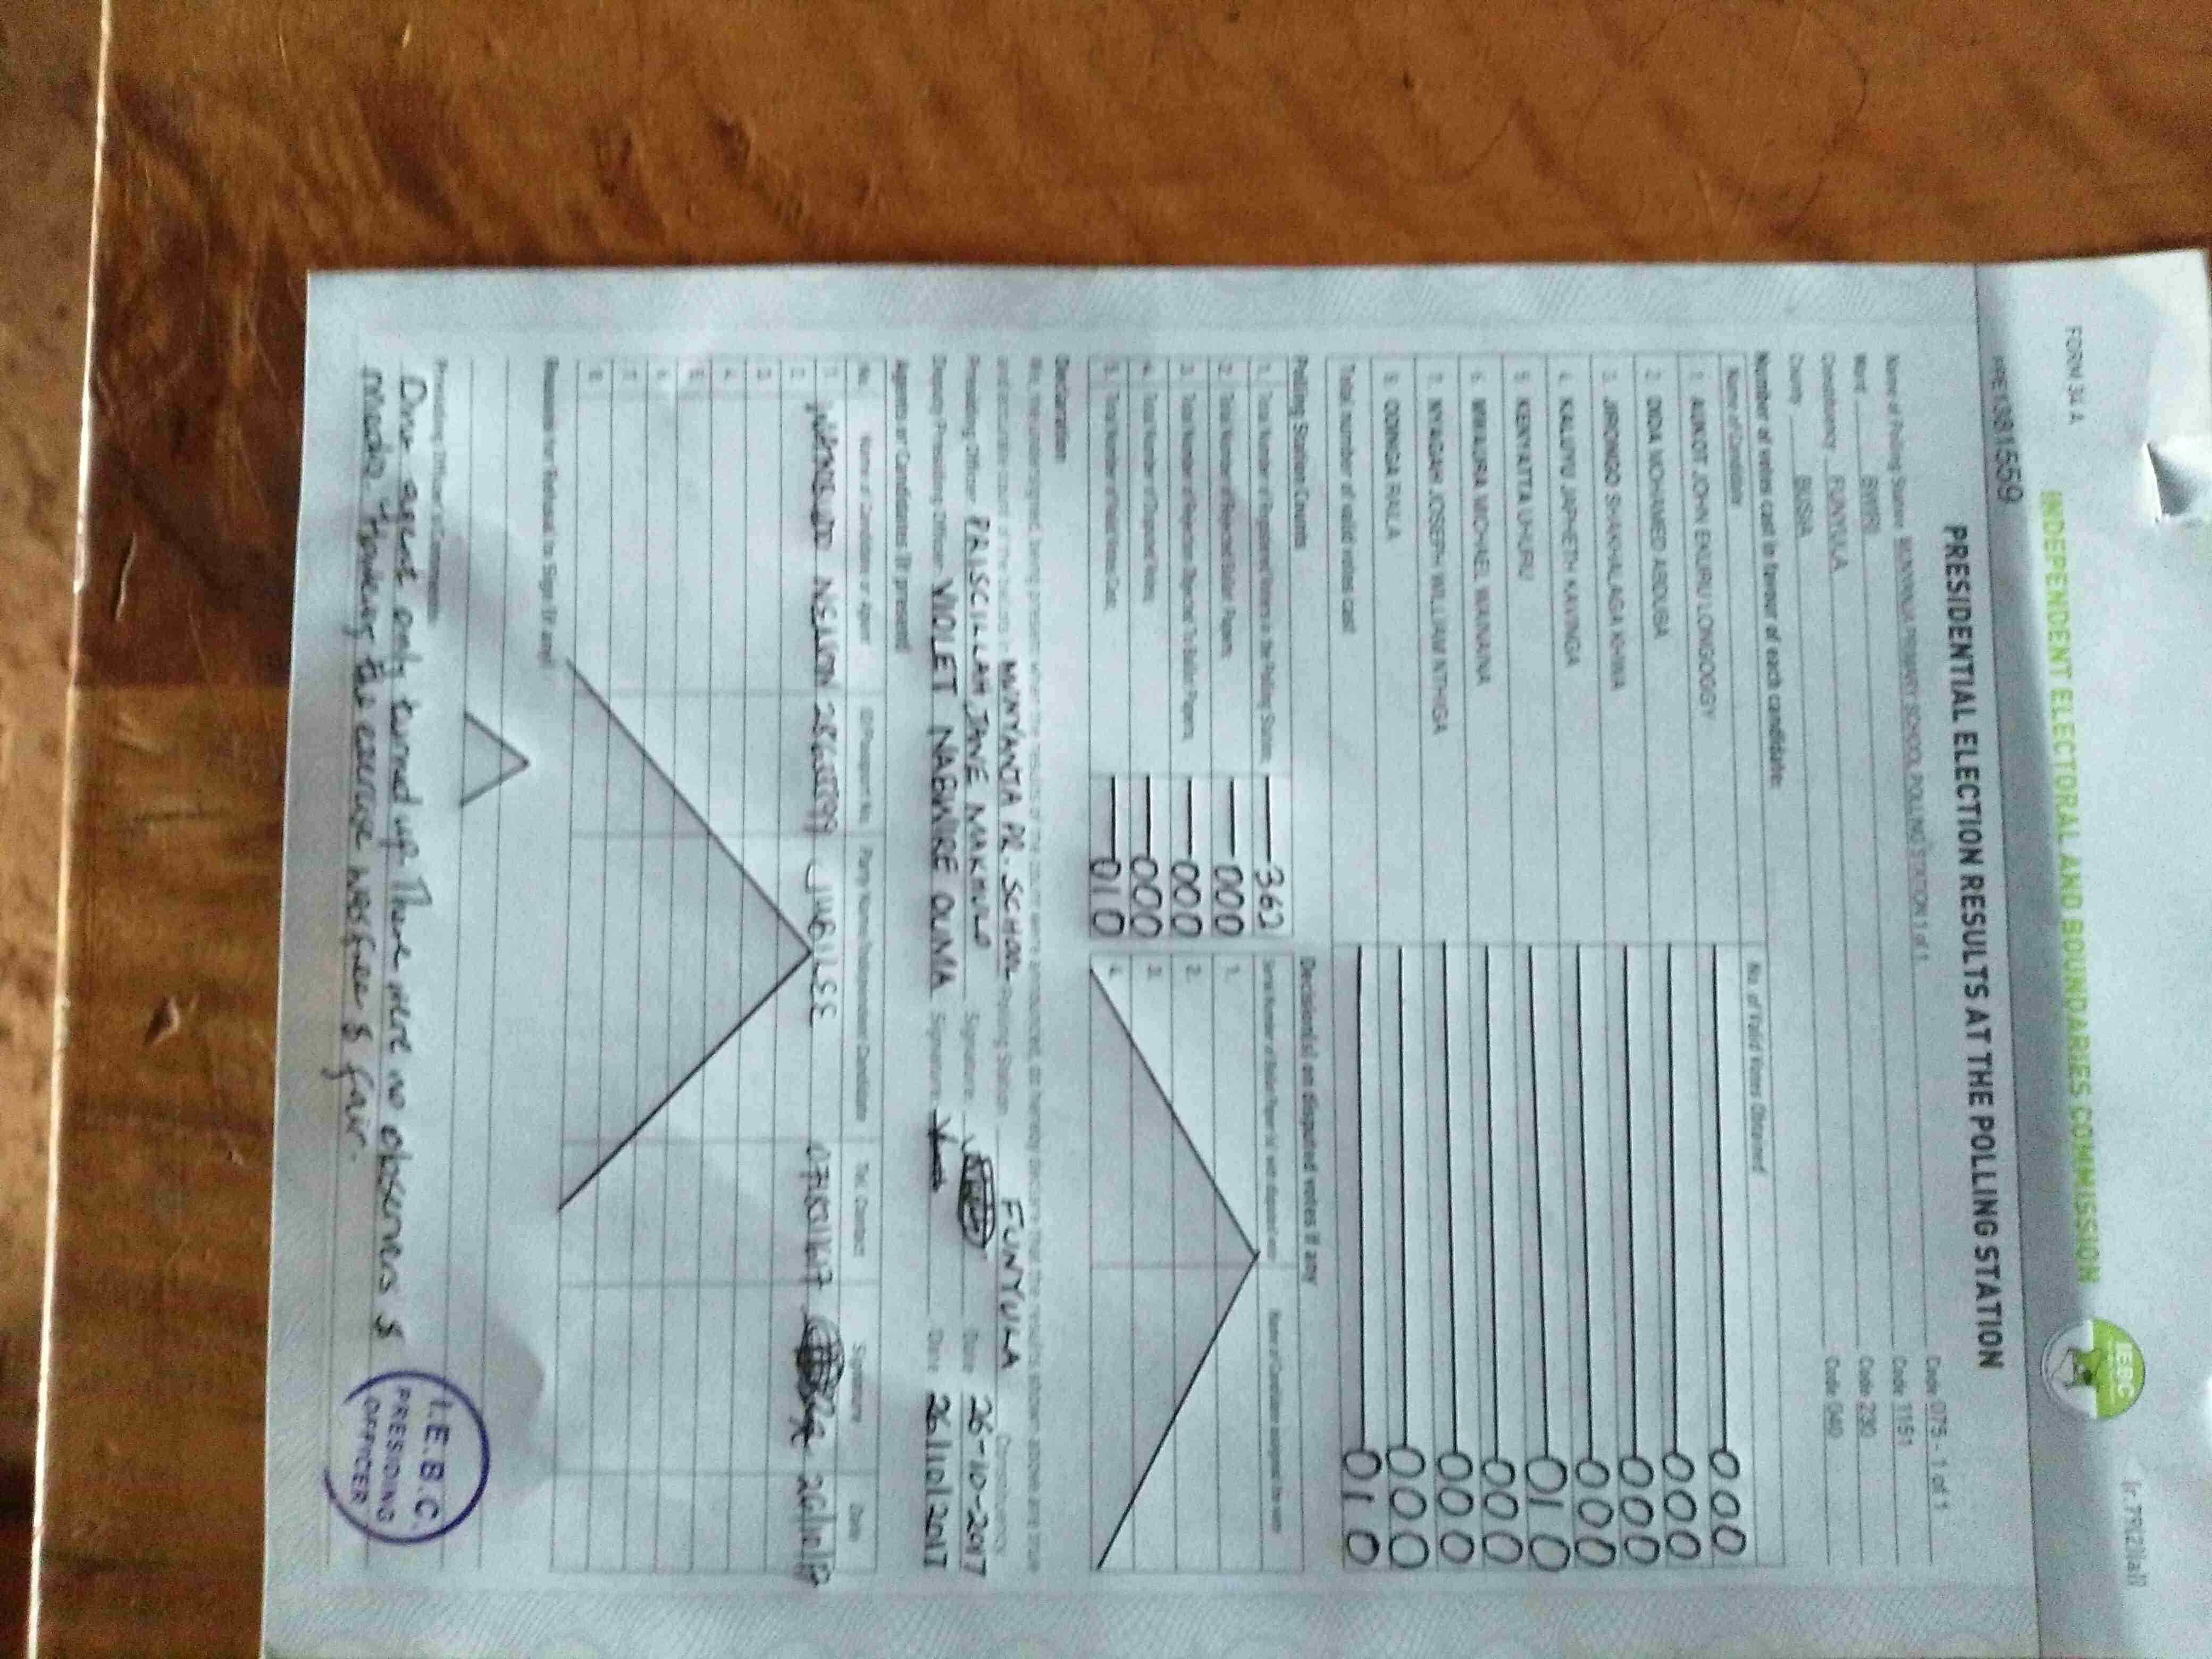 FORM 34 A
INDEPENDENT ELECTORAL AND BOUNDARIES COMMISSION
IEBC
PRE1381559
PRESIDENTIAL ELECTION RESULTS AT THE POLLING STATION
Name of Polling Station PRIMARY SCHOOL POLLING STATION 1 of 1 Code 075 - 1 of 1
Ward BWIRI Code 1151
Constituency FUNYULA Code 230
County BUSIA Code 040
Number of votes cast in favour of each candidate:
Name of Candidate No. of Valid Votes Obtained
1. AUKOT JOHN EKURU LONGOGGY 000
2. DIDA MOHAMED ABDUBA 000
3. JIRONGO SHAKHALAGA KHWA 000
4. KALUYU JAPHETH KAVINGA 000
5. KENYATTA UHURU 010
6. MWAURA MICHAEL WAINAINA 000
7. NYAGAH JOSEPH WILLIAM NTHIGA 000
8. ODINGA RAILA 000
Total number of valid votes cast 010
Polling Station Counts
1. Total Number of Registered Voters in the Polling Station
2. Total Number of Rejected Ballot Papers 000
3. Total Number of Rejection Objected To Ballot Papers 000
4. Total Number of Disputed Votes 000
5. Total Number of Valid Votes Cast 010
Decision(s) on disputed votes if any
1.
2.
3.
4.
Declaration
We, the undersigned, being present when the results of the count were announced, do hereby declare that the results shown above are true
and accurate count of the ballots in MUNYANJA PR. SCHOOL Polling Station FUNYULA Constituency
Presiding Officer PRISCILLAH JANE Signature Date 26-10-2017
Deputy Presiding Officer VIOLET NABWIRE OUMA Signature Date 26/10/2017
Agents or Candidates (If present)
No. Name of Candidate or Agent ID/Passport No. Party Name/Independent Candidate Tel. Contact Signature Date
1. JUBILEE 26/10/17
2.
3.
4.
5.
6.
7.
8.
Reasons for Refusal to Sign (if any)
Presiding Officer's Comments
One agent only turned up. There were no observers &
media. However, the exercise was free & fair.
I.E.B.C.
PRESIDING
OFFICER